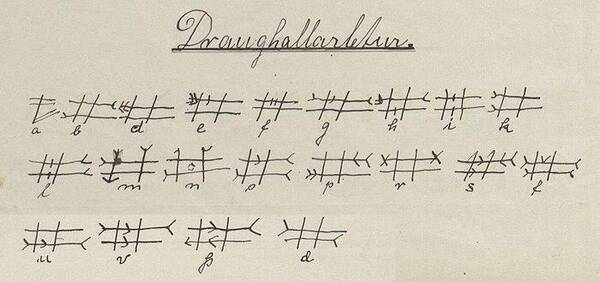 Draughallarletur.
a b d e f g h i k
l m n o p r s t
u v þ